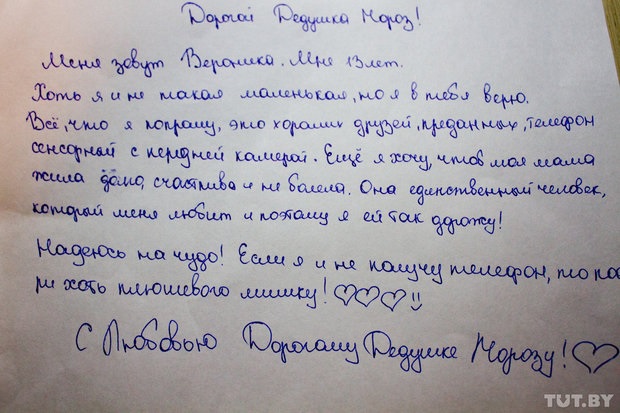 Дорогой Дедушка Мороз!
Меня зовут Вероника. Мне 13 лет.
Хоть я и не такая маленькая, но я в тебя верю.
Всё, что я попрошу, это хороших друзей, преданных, телефон
сенсорный с передней камерой. Ещё я хочу, чтоб моя мама
жила дома, счастлива и не болела. Она единственный человек,
который меня любит и поэтому я ей так дорожу!
Надеюсь на чудо! Если я и не получу телефон, то пода
ри хоть плюшевого мишку!
С Любовью Дорогому Дедушке Морозу!
TUT.BY